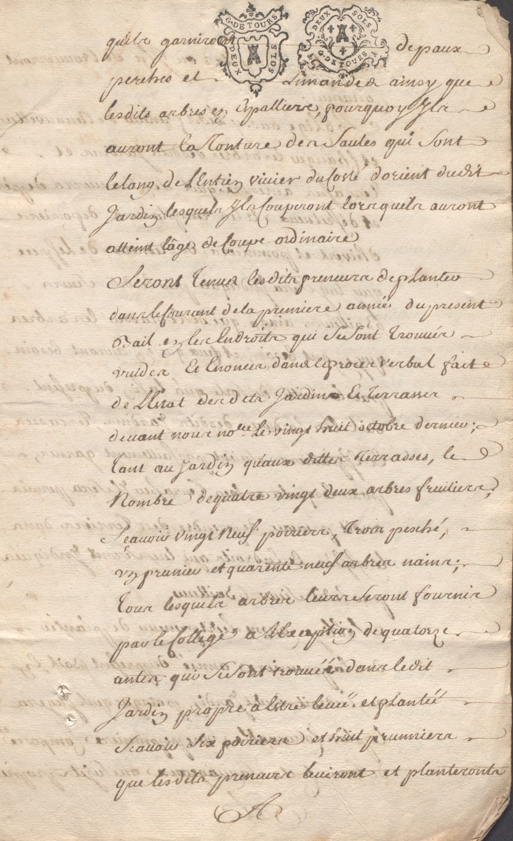 G. DE TOURS
DEUX SOLS
DEUX SOLS
G. DE TOURS
qu'ils garniront de paux
perches et Limandes ainsy que
lesdits arbres en Espalliers, pourquoy ils
auront la Tonture des Saules qui sont
le long de l'Entien vivier du Costé d'orient dudit
Jardin lesquels ils Couperont lorsquils auront
atteint l'âge de Coupe ordinaire
Seront Tenus lesdits preneurs de planter
dans le Courant de la premiere année du present
Bail es les Endroits qui se sont trouvés
vuides et Enoncés dans le procès verbal fait
de L'Etat desdits Jardins et Terrasses
devant nous nore. le vingt huit octobre dernier;
tant au Jardin qu'aux dittes Terrasses, le
Nombre de quatre vingt deux arbres fruitiers,
Scavoir vingt neuf poiriers, trois pesché,
un prunier et quarente neuf arbres nains;
tous lesquels arbres leurs Seront fournis
par le College, a L'Exception de quatorze
antes qui se sont trouvées dans ledit
Jardin propre a Estre levés et planté
Scavoir Six poiriers et huit prunniers
que lesdits preneurs leviront et planteronts